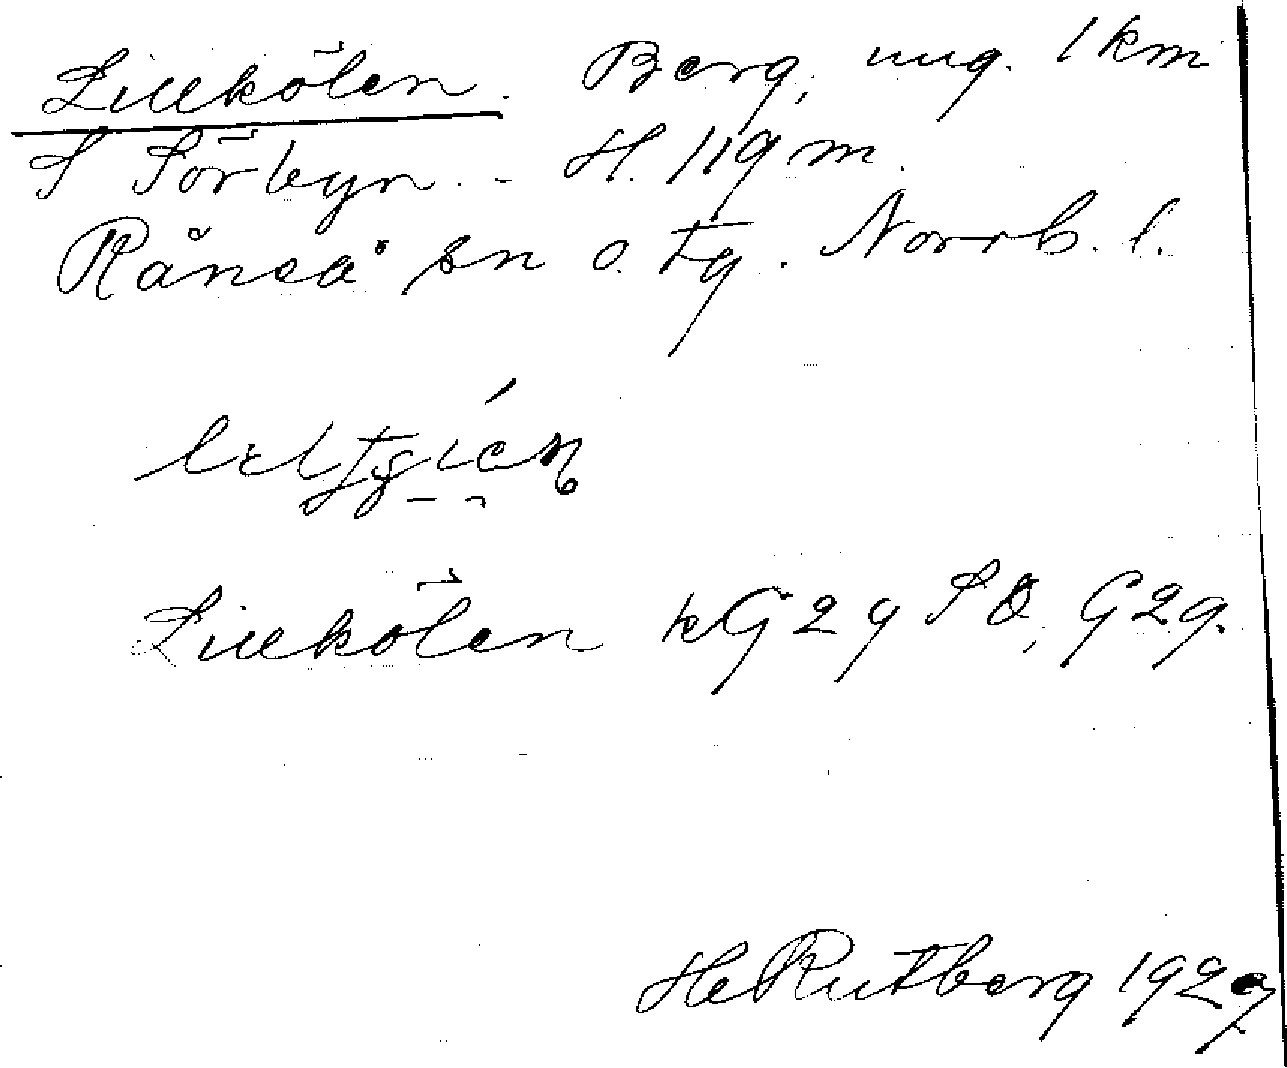 Lillkölen. Berg, ung. 1 km
S Sörbyn. - H. 119 m.
Råneå sn o. tg. Norrb. l.
Lillkölen kG29 SO, G29.
HeRutberg 1929